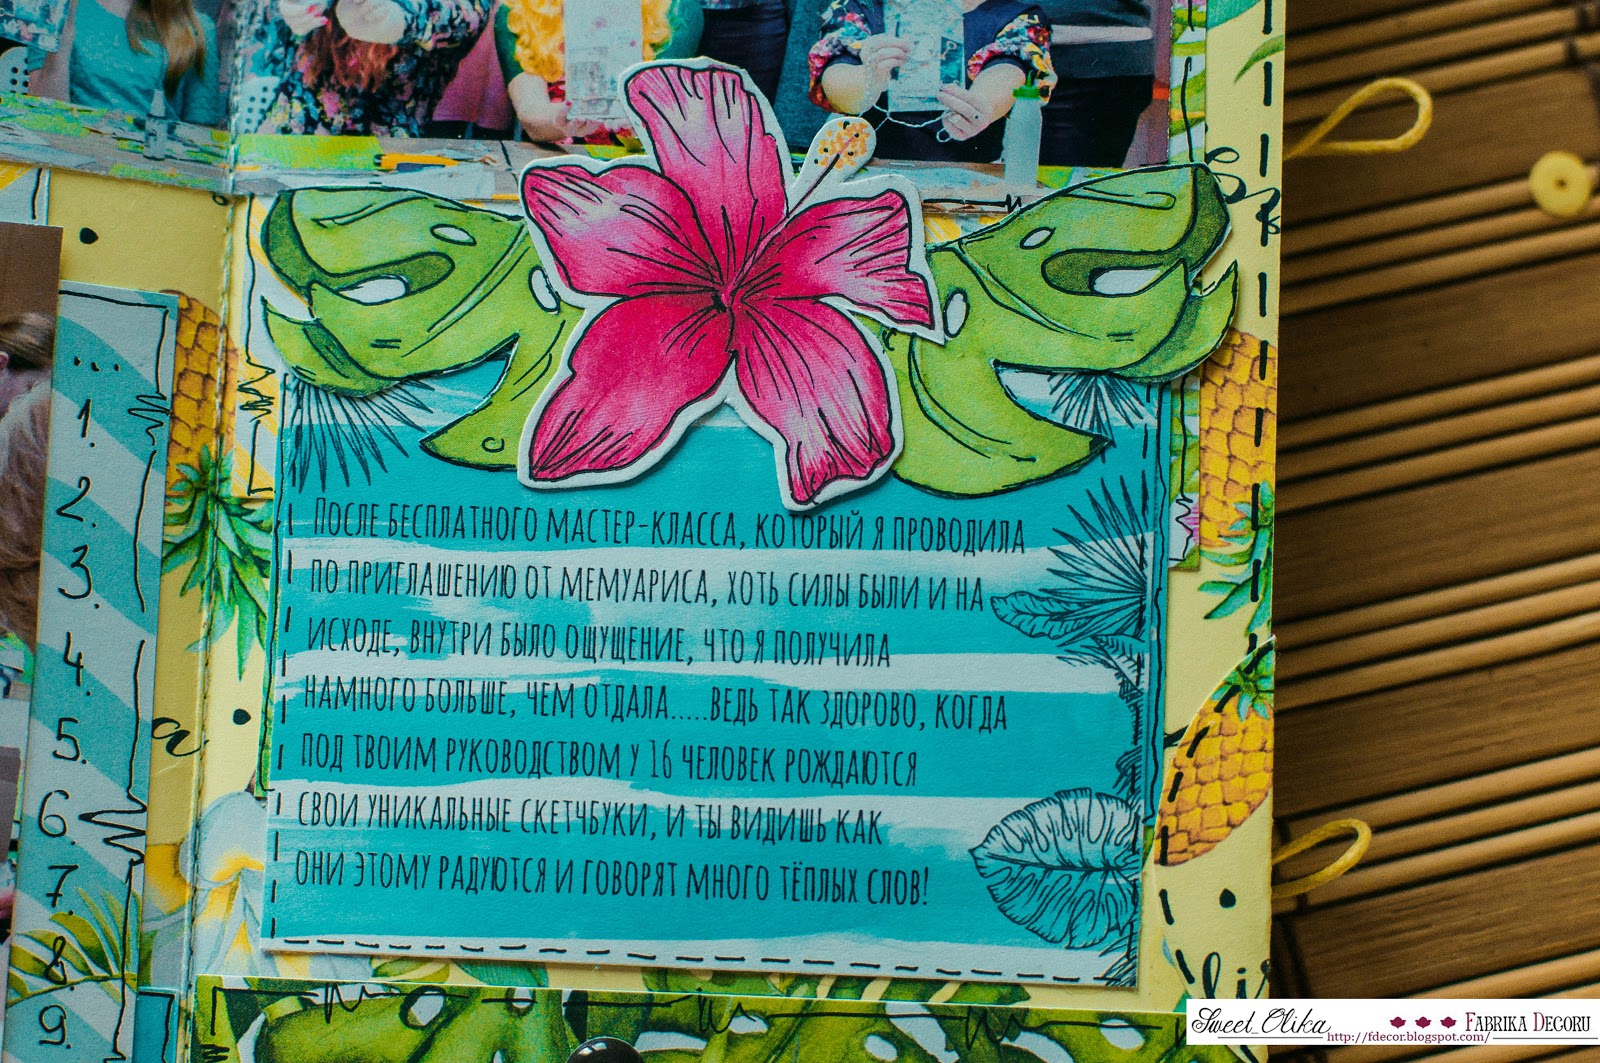 ...
1.
2.
3.
4.
5.
6.
7.
8.
9
После бесплатного мастер-класса, который я проводила
по приглашению от мемуариса, хоть силы были и на
исходе, внутри было ощущение, что я получила
намного больше, чем отдала.....ведь так здорово, когда
под твоим руководством у 16 человек рождаются
свои уникальные скетчбуки, и ты видишь как
они этому радуются и говорят много тёплых слов!
a
Sweet_Olika
Fabrika Decoru
http://fdecor.blogspot.com/